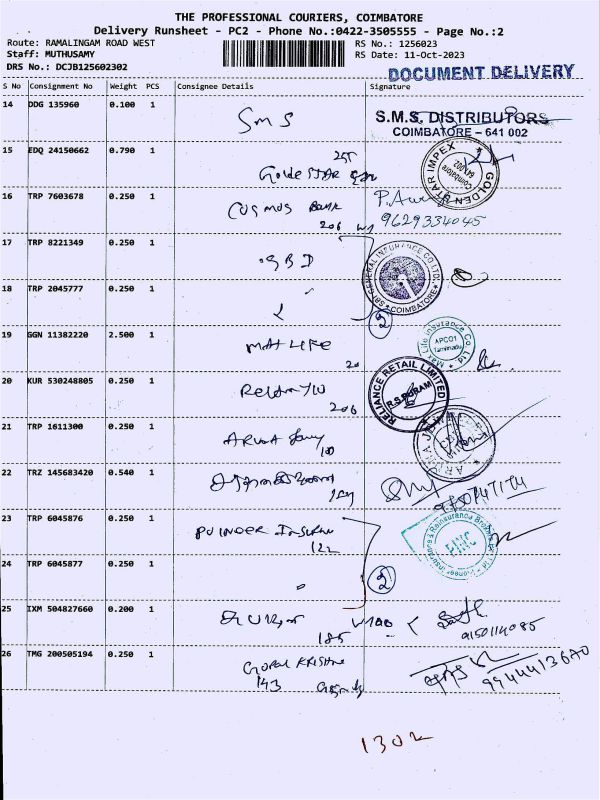 THE PROFESSIONAL COURIERS, COIMBATORE
Delivery Runsheet - PC2 - Phone No.:0422-3505555 - Page No.:2
Route: RAMALINGAM ROAD WEST
RS No.: 1256023
Staff: MUTHUSAMY
RS Date: 11-Oct-2023
DRS No.: DCJB125602302
DOCUMENT DELIVERY
S No Consignment No Weight PCS Consignee Details Signature
14 DDG 135960 0.100 1 SMS
S.M.S. DISTRIBUTORS
COIMBATORE – 641 002
15 EDQ 24150662 0.790 1
GOLDEN STAR IMPEX
Coimbatore
641 002
16 TRP 7603678 0.250 1 COSMOS Bank
206
9629334045
17 TRP 8221349 0.250 1 SBI
SBI GENERAL INSURANCE CO. LTD.
COIMBATORE
18 TRP 2045777 0.250 1
2
19 GGN 11382220 2.500 1 MAX LIFE
20
Max Life Insurance Co. Ltd
APCO1
Tamilnadu
20 KUR 530248805 0.250 1
206
RELIANCE RETAIL LIMITED
R.S.PURAM
21 TRP 1611300 0.250 1
22 TRZ 145683420 0.540 1
23 TRP 6045876 0.250 1
122
PINC
24 TRP 6045877 0.250 1
2
25 IXM 504827660 0.200 1
185
9150114085
26 TMG 200505194 0.250 1 GOPAL KRISHNA
143
9944413670
1302